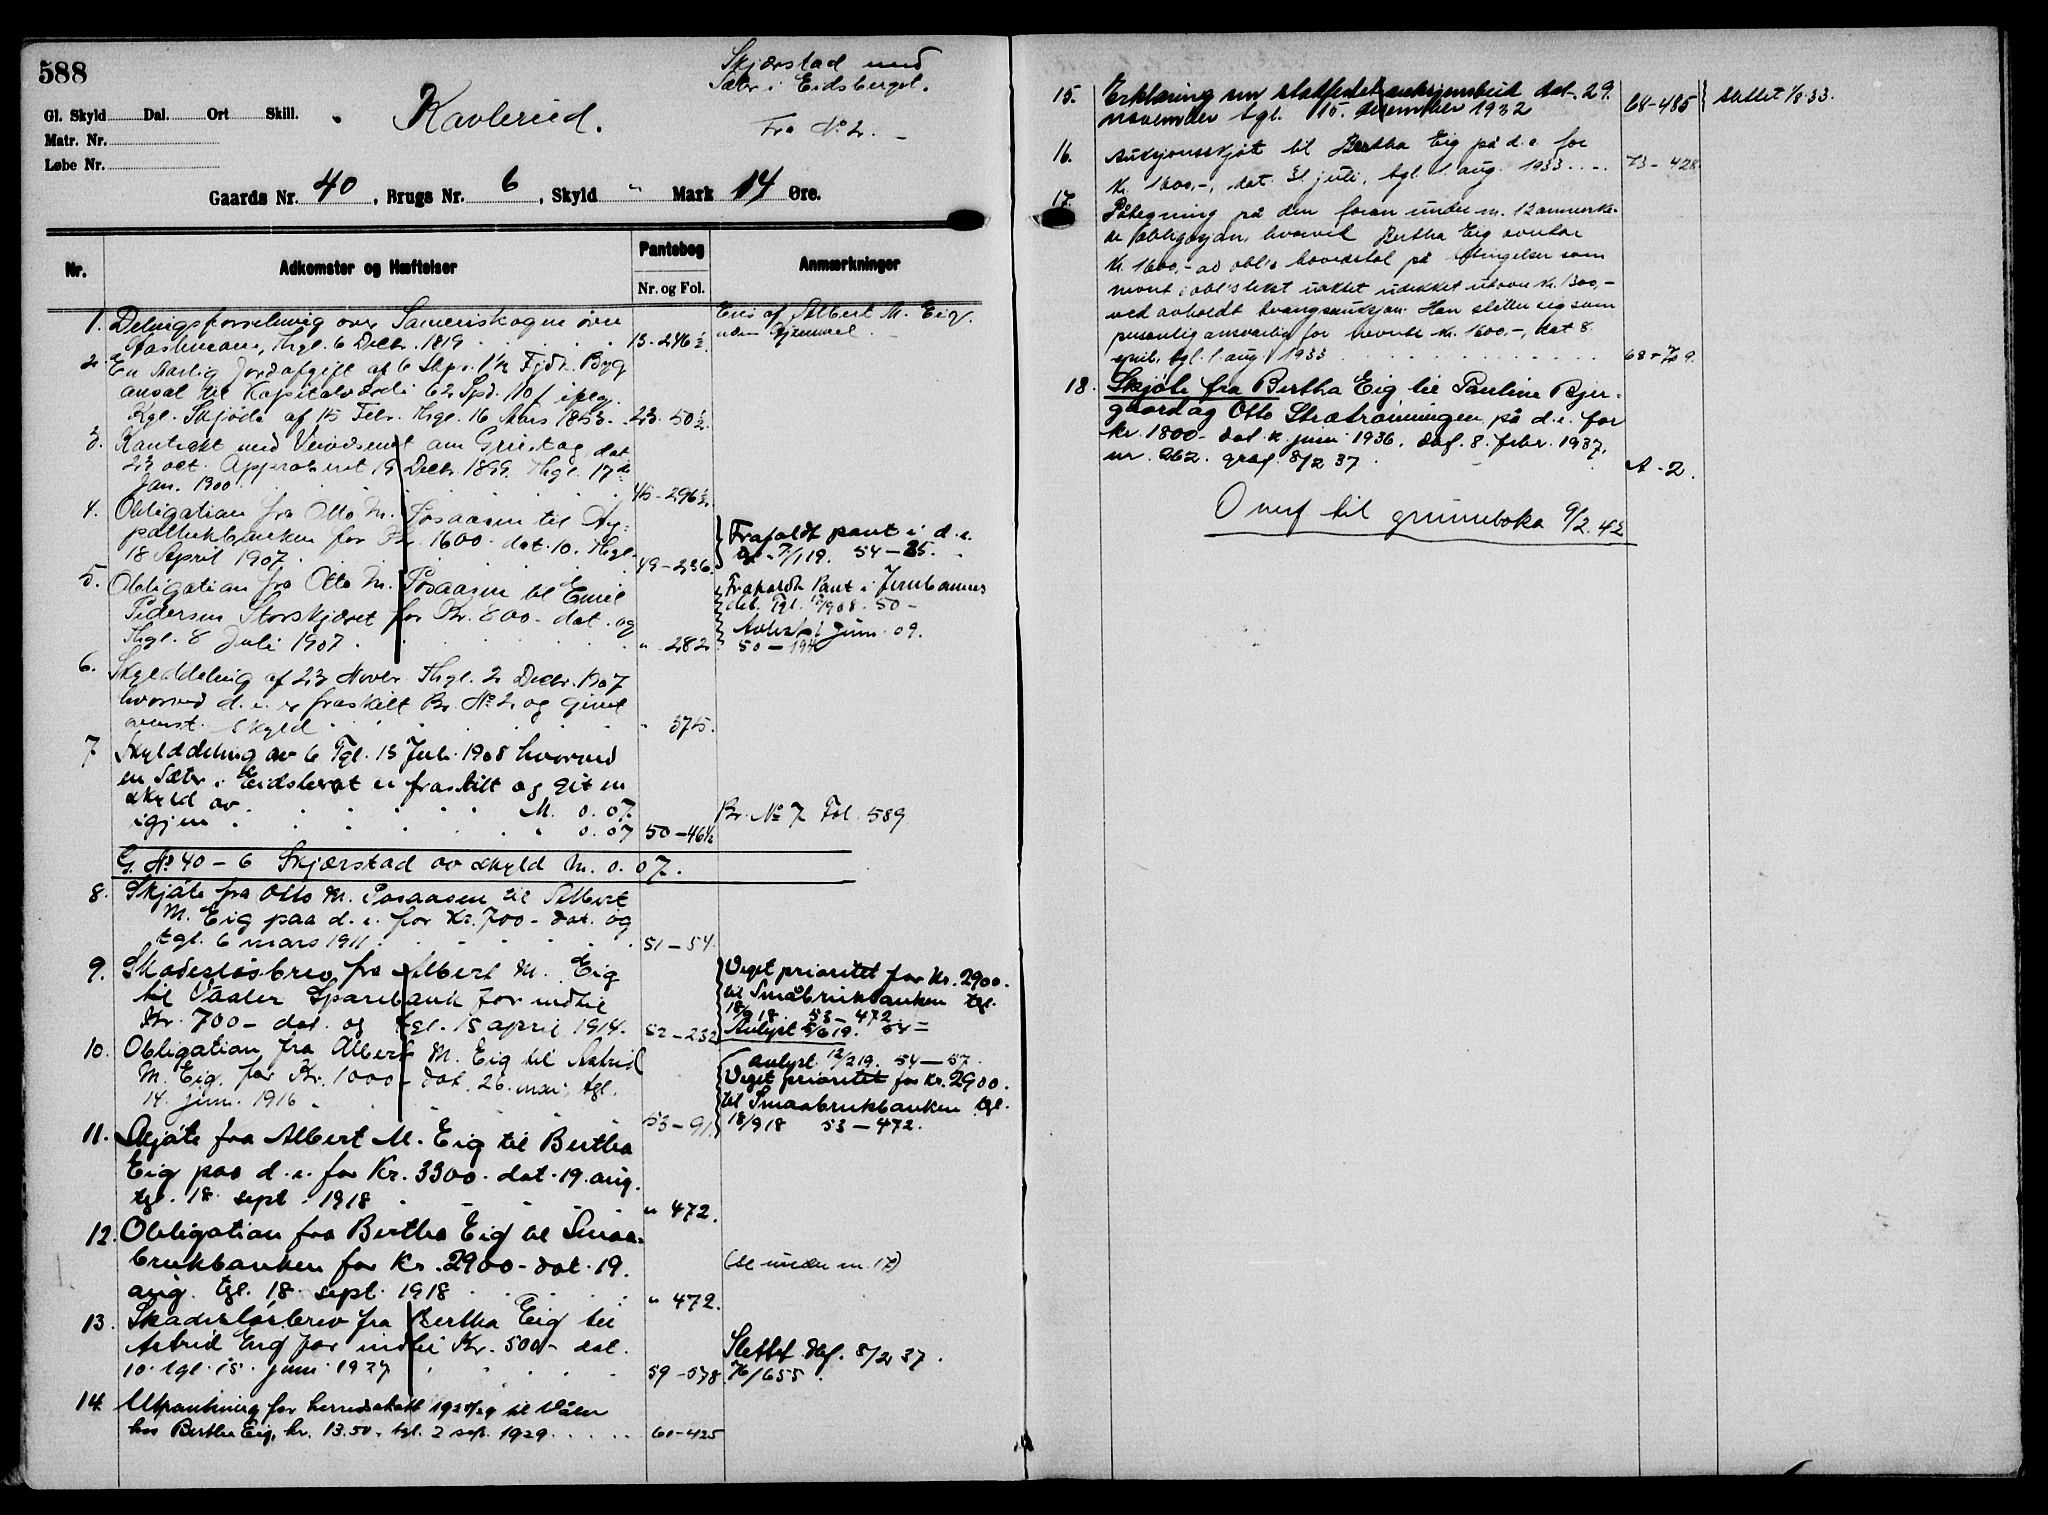 588
Skjærstad med
Sæter i Eidsberget.
Gl. Skyld Dal. Ort Skill.
Kavlerud.
Fra No 2. –
Matr. Nr.
Løbe Nr.
Gaards Nr. 40, Brugs Nr. 6, Skyld " Mark 14 Øre.
Nr. Adkomster og Hæftelser Pantebog Anmærkninger
Nr. og Fol.
1. Delingsforretning over Sameieskogen
Thgl. 6 Decbr. 1819 13-246½.
Eies af Albert M. Eig.
2. En aarlig Jordafgift af 6 Skp. 1½ Fjdk. Byg
ansat til Kapitalværdi 62 Spd. 110 f ifølg.
Kgl. Skjøde af 15 Febr. Thgl. 16 Mars 1853. 23-50½.
3. Kontrakt med Veivæsenet om Grustag dat
23 oct. Approberet 19 Decbr. 1899. Thgl. 17de
Jan. 1900 45-296½.
4. Obligation fra Otto M. Posaasen til Hy-
pothekbanken for Kr. 1600. dat. 10. Thgl.
18 April 1907. 49-236.
Frafaldt pant i d. e.
Dgl. 7/1 19. 54-25.
5. Obligation fra Otto M. Posaasen til Emil
Pedersen Storskjæret for Kr. 800. dat. og
Thgl. 8 Juli 1907. " 282
Frafaldt Pant i
Tgl. 50 –
Avlyst Juni 09.
50 – 194
6. Skylddeling af 23 Novbr. Thgl. 2 Decbr. 1907
hvorved d. e. er fraskilt Br. No 2 og givet
ovenst. Skyld " 375.
7 Skylddeling av 6 Tgl. 15 Juli 1908 hvorved
en Sæter i Eidsberget er fraskilt og git en
skyld av M. 0.07.
igjen " 0.07 50-46½
Br. No 7 Fol. 589
G. No 40 – 6 Skjærstad av skyld M. 0.07.
8. Skjøte fra Otto M. Posaasen til Albert
M. Eig paa d. e. for Kr. 700 – dat. og
tgl. 6 mars 1911. 51-54.
9. Skadesløsbrev fra Albert M. Eig
til Vaaler Sparebank for indtil
Kr. 700 – dat. og tgl. 15 april 1914. 52-232
Veget prioritet for Kr. 2900.
til Småbrukbanken tgl.
18/9 18. 53-472
Avlyst 5/6 19. 54 –
10. Obligation fra Albert M. Eig til Astrid
M. Eig. for Kr. 1000 – dat. 26. mai, tgl.
14. juni 1916. 53-91.
avlyst 12/2 19. 54-57.
Veget prioritet for Kr. 2900.
til Smaabrukbanken tgl.
18/9 18 53-472.
11. Skjøte fra Albert M. Eig til Bertha
Eig paa d. e. for Kr. 3300. dat. 19. aug.
tgl. 18 sept. 1918 " 472.
12. Obligation fra Bertha Eig til Smaa-
brukbanken for Kr. 2900 – dat. 19.
aug. tgl. 18. sept. 1918 " 472.
(se under nr. 17)
13. Skadesløsbrev fra Bertha Eig til
Astrid Eig for indtil Kr. 500 – dat.
10. tgl. 15. juni 1927 59-578
Slettet dbf. 8/2 37.
76/655.
14. Utpantning for herredsskatt 1928/29 til Våler
hos Bertha Eig, kr. 13.50. tgl. 2 sep. 1929. 60-425
15. Erklæring om stattfestet auksjonsbud dat. 29.
november tgl. 15. desember 1932 64-485
slettet 1/8 33.
16. Auksjonsskjøte til Bertha Eig på d. e. for
kr. 1600,-, dat. 31. juli, tgl. 1. aug. 1933 73-428
17. Påtegning på den foran under nr. 12 anmerke-
de obligasjon, hvorved Bertha Eig overtar
kr. 1600,- av obl.s hovedstol på betingelser som
nevnt i obl's tekst uaktet udekket utover kr. 1300,-
ved avholdt tvangsauksjon. Han stiller sig som
personlig ansvarlig for nevnte kr. 1600,-, dat 8.
april, tgl. 1. aug 1933 68-709.
18. Skjøte fra Bertha Eig til Pauline Bjer-
gaard og Otto Strætrømningen på d. e. for
kr. 1800- dat. juni 1936. dagf. 8. febr. 1937.
nr. 262. grbf. 8/2 37. A-2.
Overf til grunnboka 9/2.42